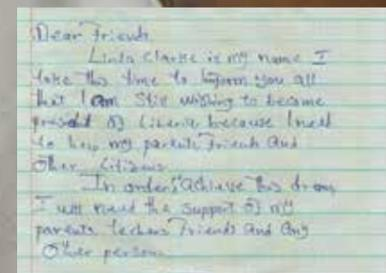 Dear Friends
Linda Clarke is my name I
take this time to Inform you all
that I am Still wishing to become
president of Liberia because I need
to help my parents, Friends And
Other Citizens
In order, achieve this dream
I will need the Support of my
parents techers Friends and Any
Other person